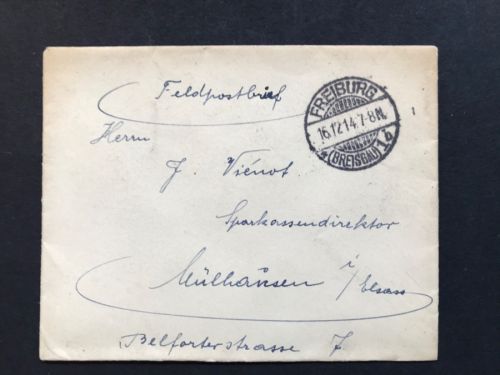 Feldpostbrief
FREIBURG
16.12.14. 7-8 N.
* (BREISGAU) 1 b
Herrn
J. Viénot
Sparkassendirektor
Mülhausen i/Elsass
Belforterstrasse 7.